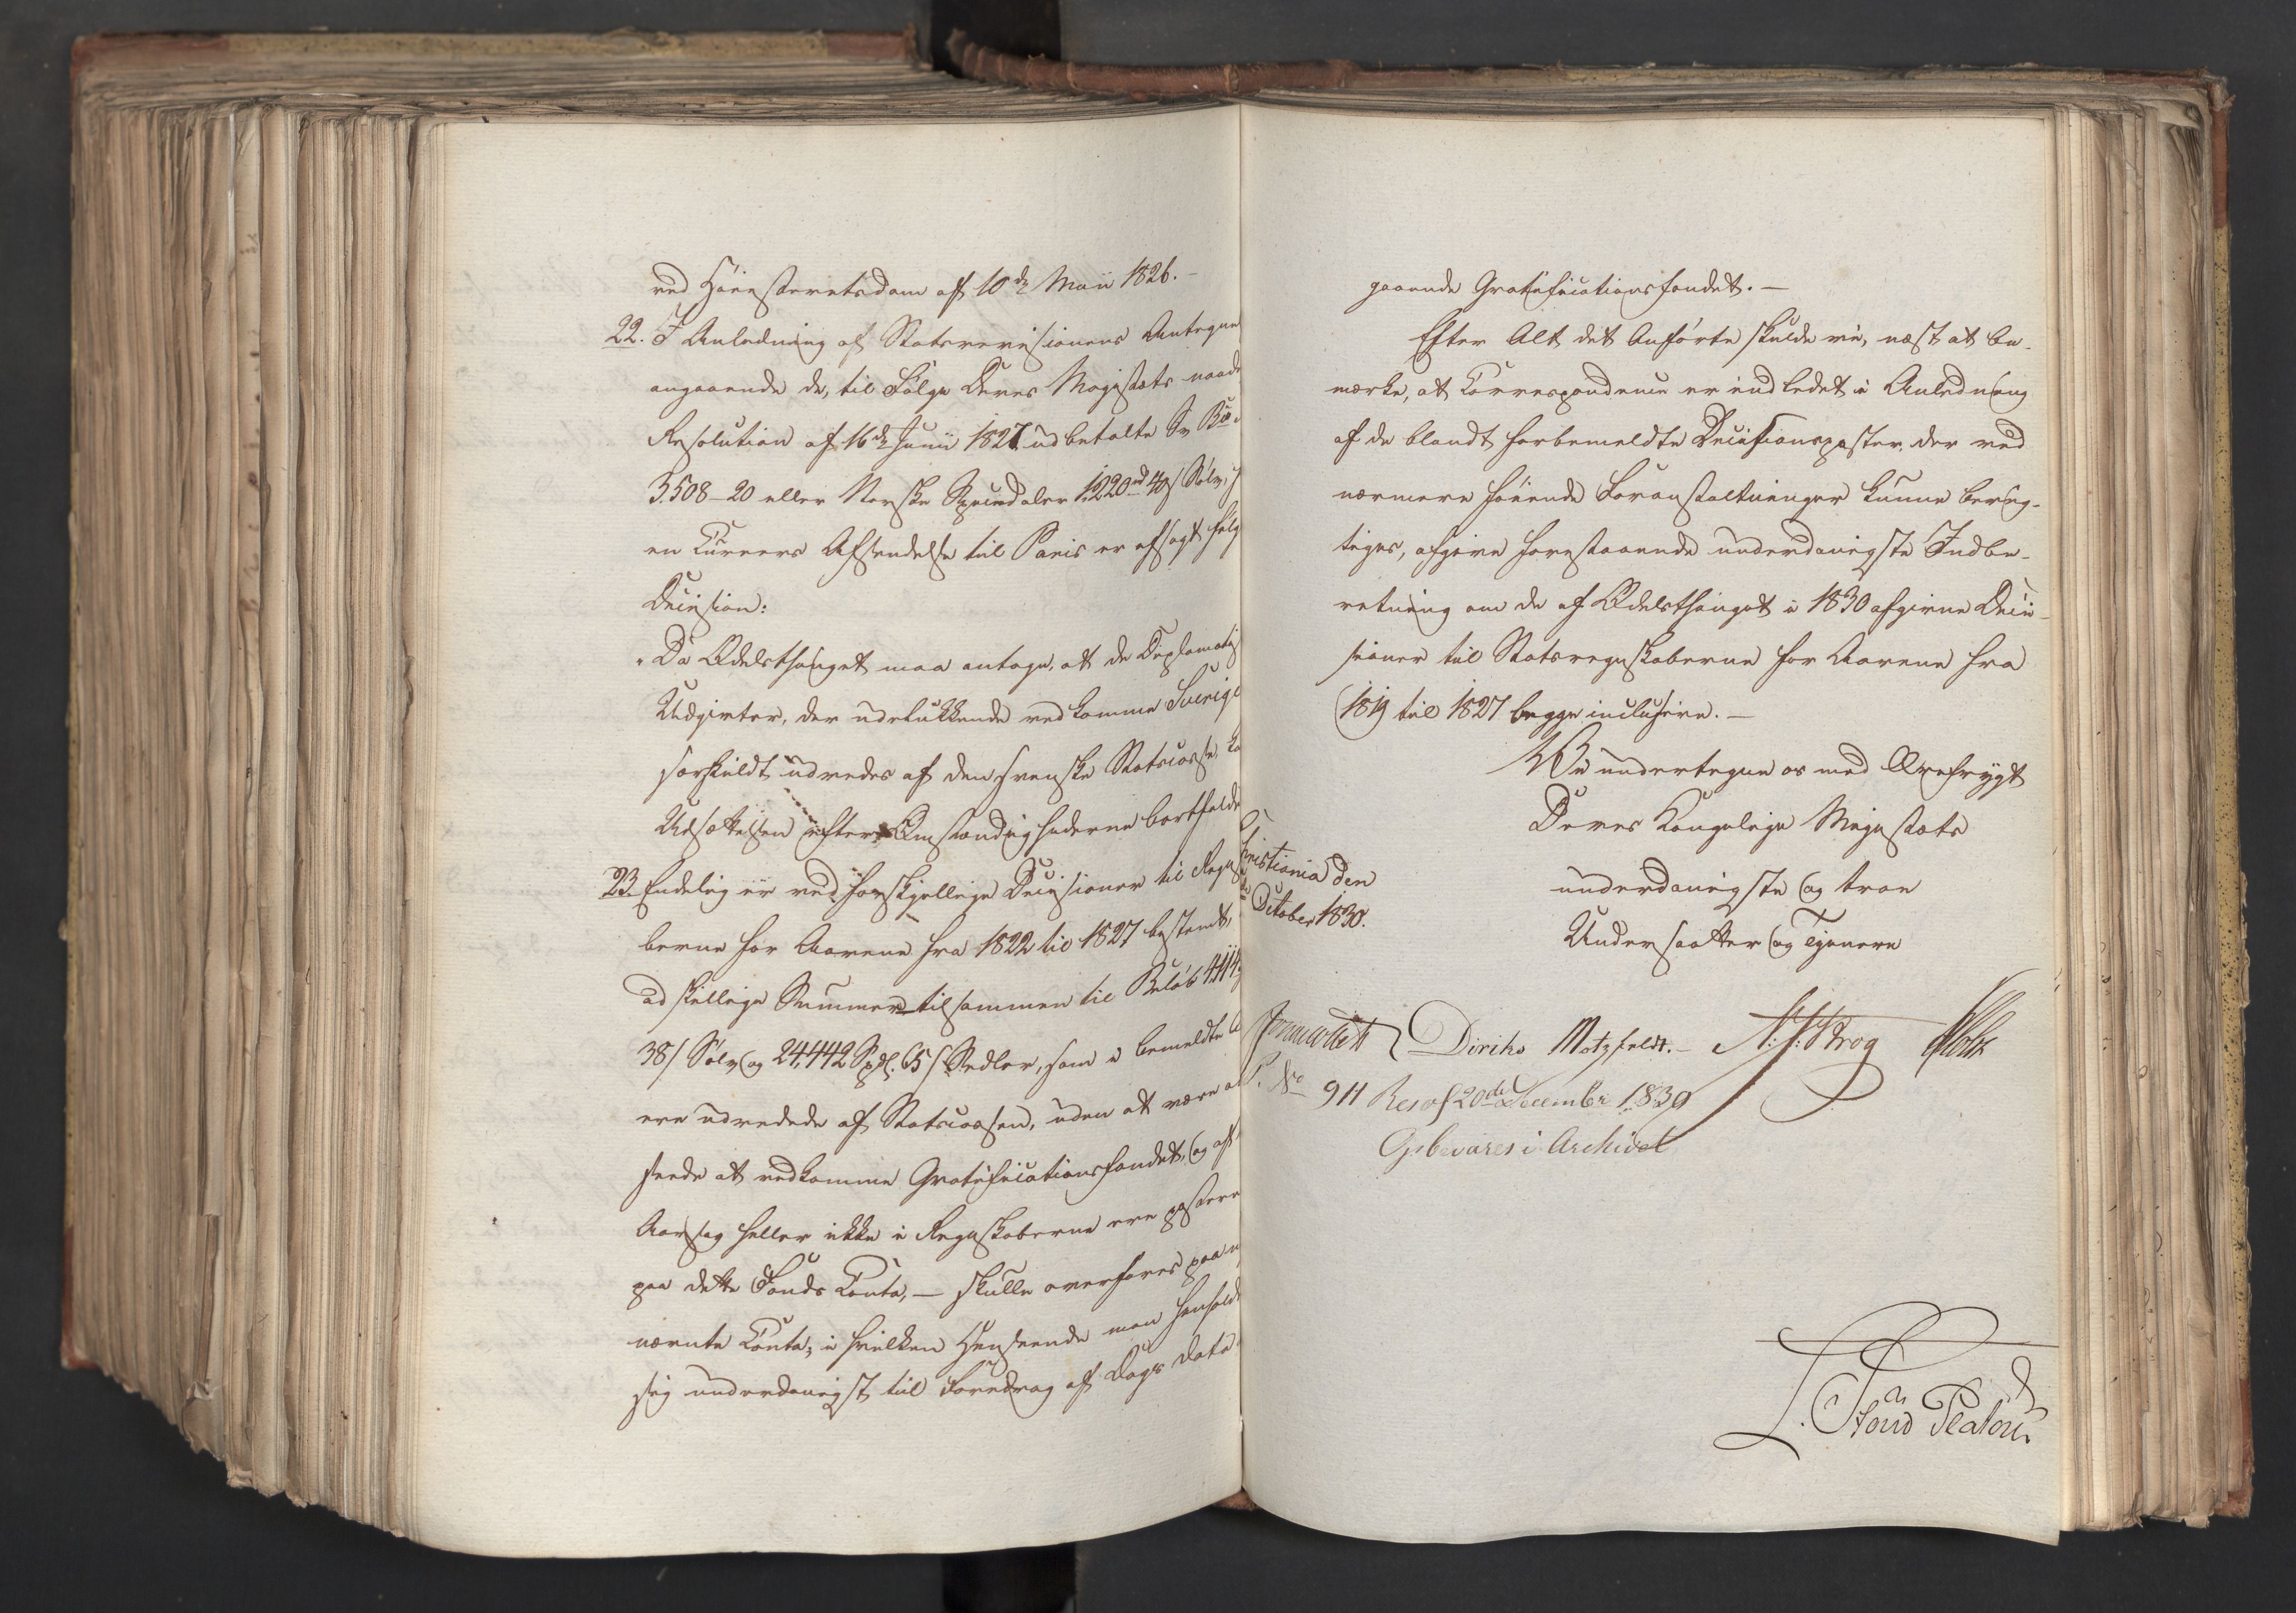 ved Høiesteretsdom af 10de Maii 1826. –
22. I Anledning af Statsrevisionens Antegne
angaaende de, til Følge Deres Majestæts naad
Resolution af 16de Junii 1827 udbetalte Sv Bco
3.508–20 eller Norske Speciedaler 1220 40 s Sølv,
en Cureers Afsendelse til Paris er afsagt følg
Decision:
"Da Odelsthinget maa antage, at de Diplomatis
Udgivter, der udelukkende vedkomme Sverige
særskildt udredes af den svenske Statscasse,
Udsættelsen efter Omstændighederne bortfalde
23. Endelig er ved forskjellige Decisioner til Regns
berne for Aarene fra 1822 til 1827 bestemt,
adskillige Summer tilsammen til Beløb 4414
38 s Sølv og 24,442 Spd. 65 s Sedler, som i bemeldte
ere udredede af Statscassen, uden at være
seede at vedkomme Gratificationsfondet, og af
Aarsag heller ikke i Regnskaberne ere posterede
paa dette Fonds Conto, – skulle overføres paa
nævnte Conto; i hvilken Henseende man henholde
sig underdanigst til Foredrag af Dags Dato
gaaende Gratificationsfondet. –
Efter Alt det Anførte skulde vi, næst at be-
mærke, at Correspondence er indledet i Anledning
af de blandt forbemeldte Decisionsposter, der ved
nærmere føiende Foranstaltninger kunne berig-
tiges, afgive forestaaende underdanigste Indbe-
retning om de af Odelsthinget i 1830 afgivne Deci-
sioner til Statsregnskaberne for Aarene fra
1819 til 1827 begge inclusive. –
Vi undertegne os med Ærefrygt
Deres Kongelige Majestæts
underdanigste og troe
Undersaatter og Tjenere
Christiania den
October 1830.
Jonas Collett Diriks Motzfeldt. – N. J. Krog Holst
P. No 911 Res af 20de December 1830
Opbevares i Archivet